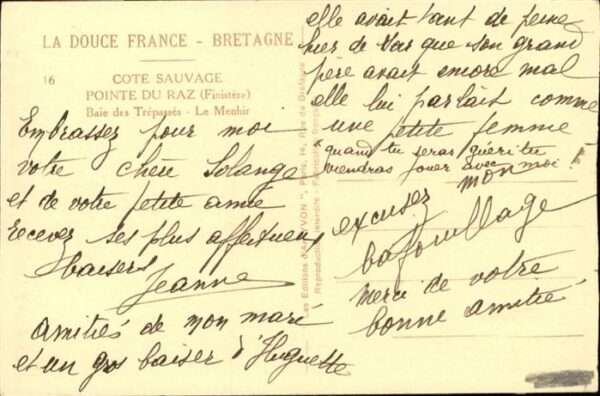 LA DOUCE FRANCE - BRETAGNE
16 COTE SAUVAGE
POINTE DU RAZ (Finistère)
Baie des Trépassés - Le Menhir
elle avait tant de peine
hier de voir que son grand
père avait encore mal
elle lui parlait comme
une petite femme
"quand tu seras guéri tu
viendras jouer avec moi!"
mon
excusez
bafouillage
Merci de votre
bonne amitié
Embrassez pour moi
votre chère Solange
et de votre petite amie
recevez ses plus affectueux
baisers
Jeanne
Amitiés de mon mari
et un gros baiser d'Huguette
Les Editions d'Art YVON", Paris, 
Reproduction interdite - Fabrication française